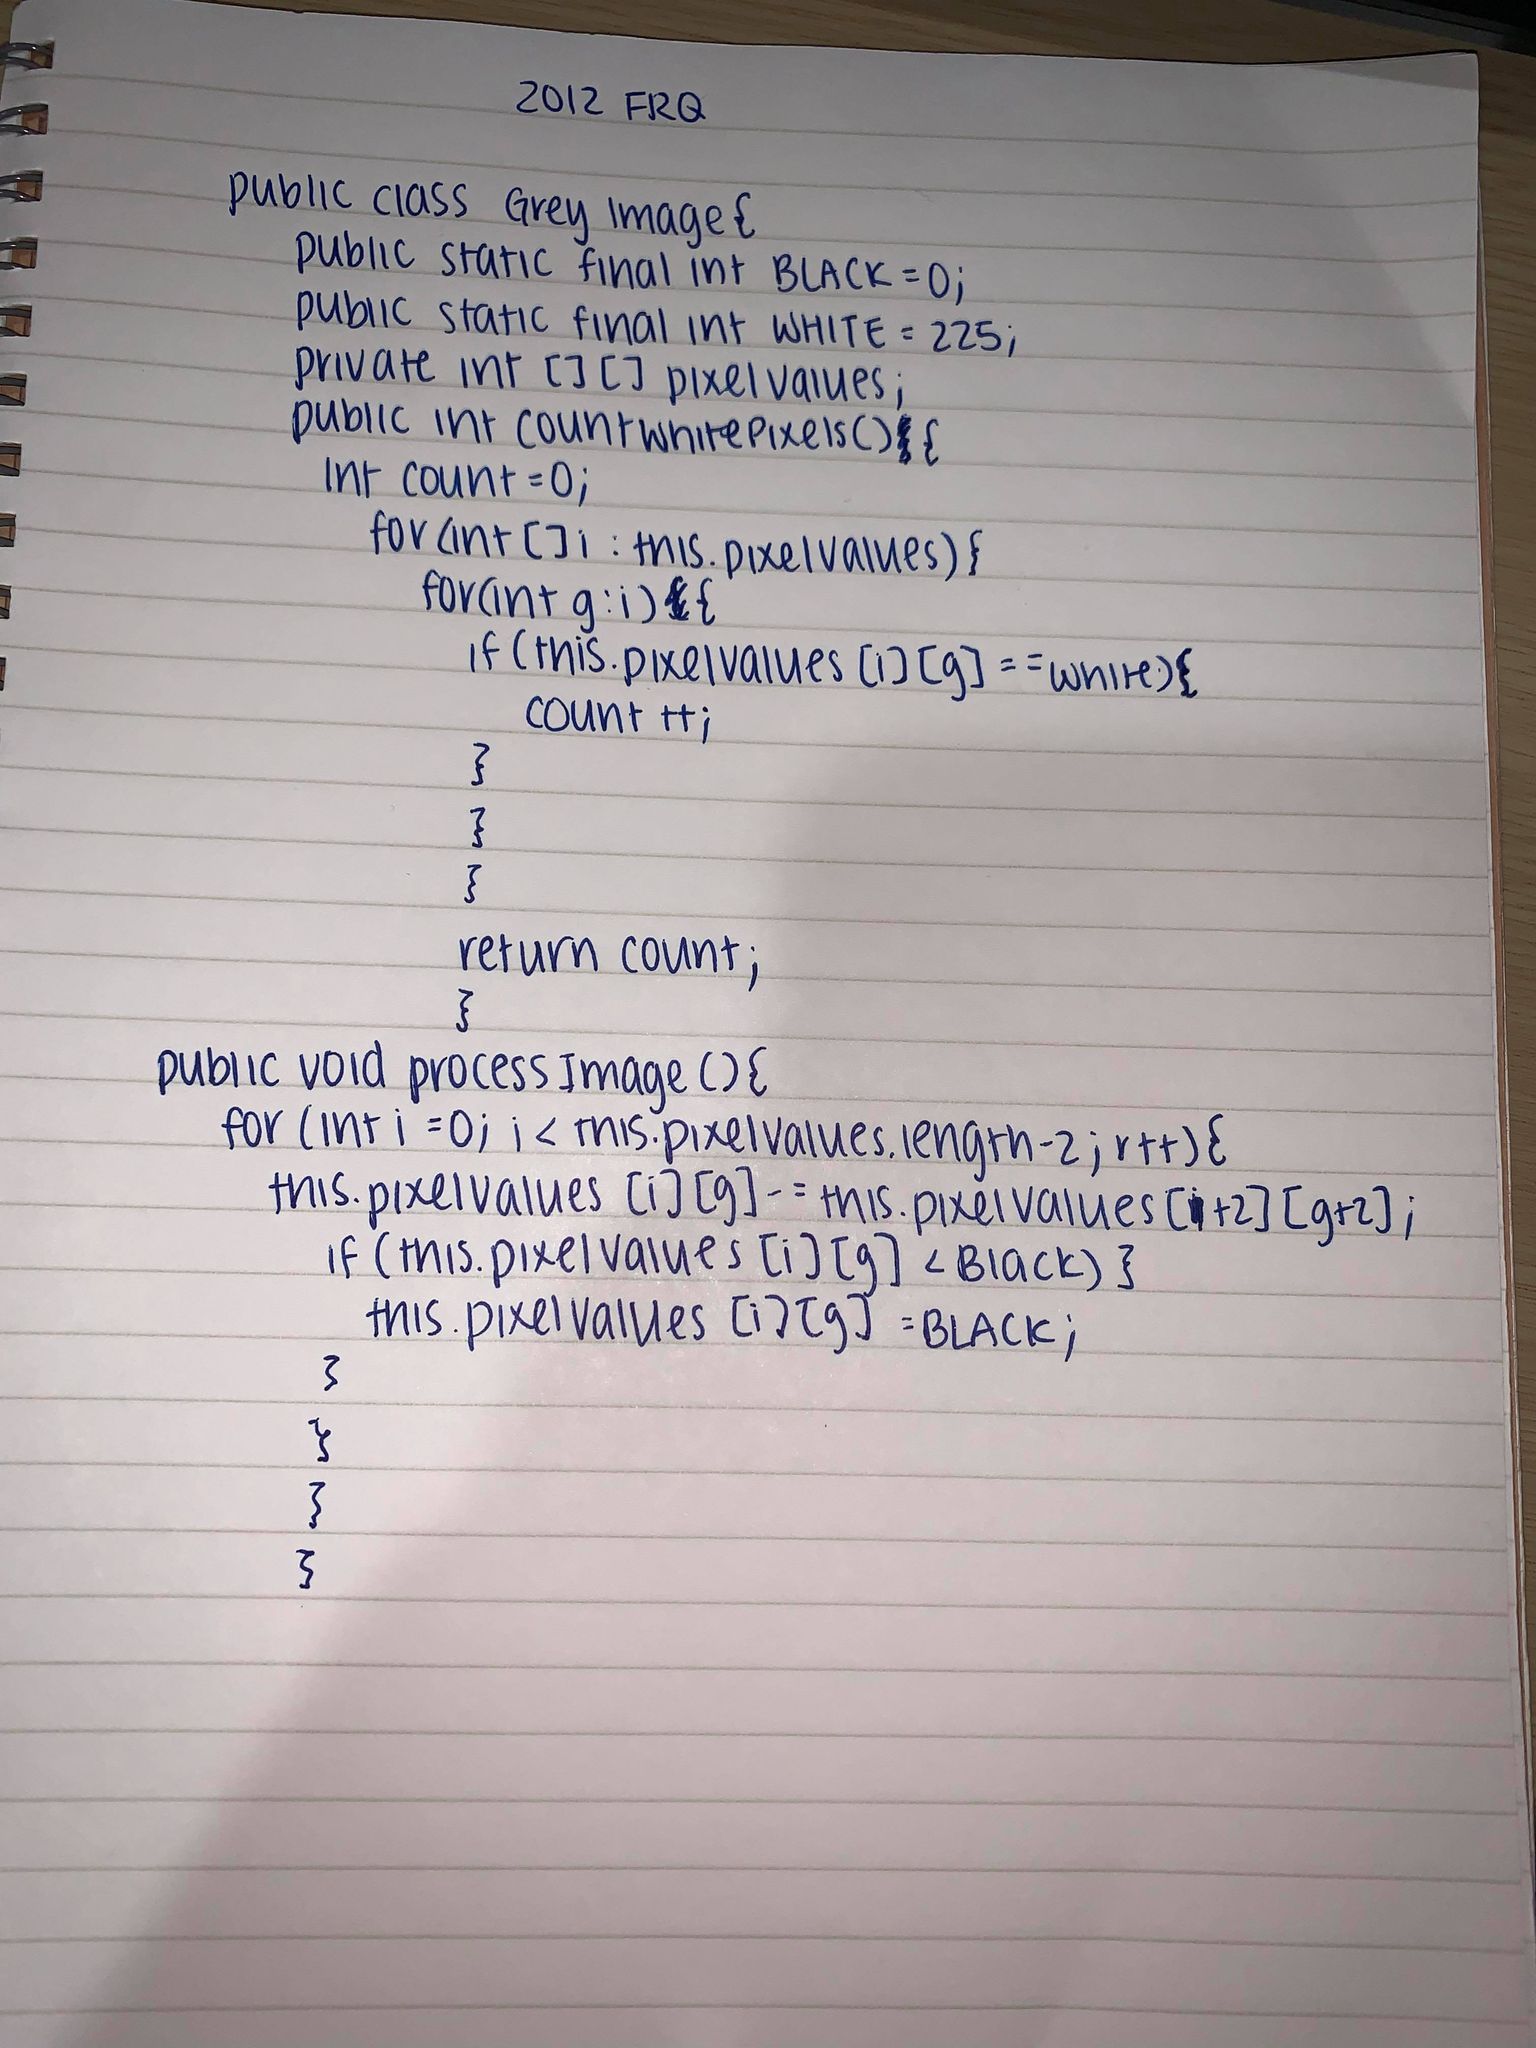 2012 FRQ
public class Grey Image{
public static final int BLACK = 0;
public static final int WHITE = 225;
private int [][] pixelvalues;
public int countwhitePixels(){
int count = 0;
for(int []i : this.pixelvalues){
for(int g:i){
if (this.pixelvalues [i][g] == white){
count ++;
}
}
}
return count;
}
public void processImage(){
for (int i = 0; i < this.pixelvalues.length-2; r++){
this.pixelvalues [i][g] -= this.pixelvalues[i+2][g+2];
if (this.pixelvalues [i][g] < Black) }
this.pixelvalues [i][g] = BLACK;
}
}
}
}